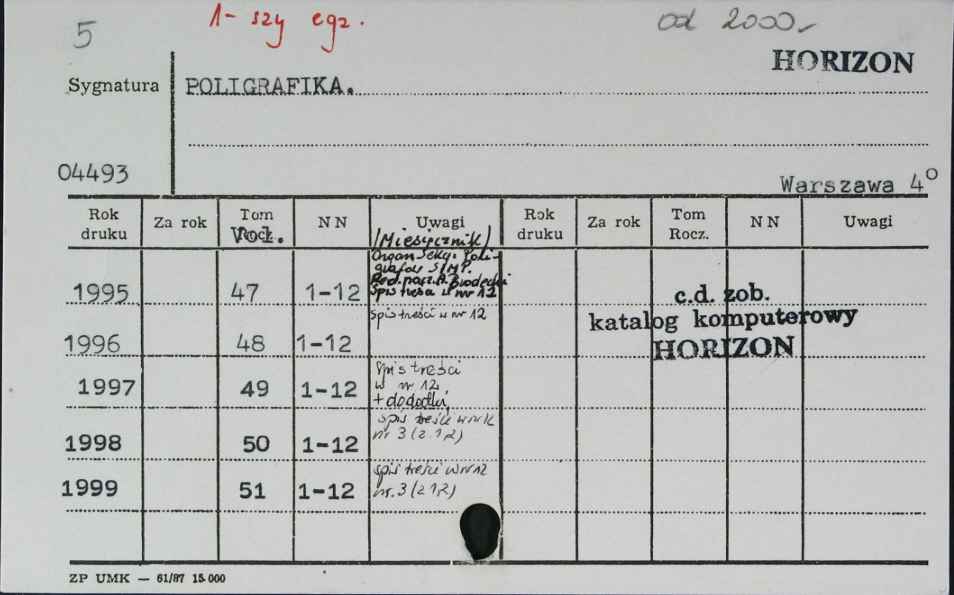 5
1-szy egz.
od 2000,-
HORIZON
Sygnatura
POLIGRAFIKA.
04493
Warszawa 4°
Rok druku Za rok Tom Rocz. N N Uwagi Rok druku Za rok Tom Rocz. N N Uwagi
Vol.
/Miesięcznik/
Organ Sekcji Poli-
grafów SIMP.
Red. nacz. A. Brodecki
1995 47 1-12 spis treści w nr 12
1996 48 1-12 spis treści w nr 12
1997 49 1-12 Spis treści
w nr 12,
+ dodatki,
1998 50 1-12 spis treści w nr
nr 3 (z 12)
1999 51 1-12 spis treści w nr 12
nr. 3 (z 12)
c.d. zob.
katalog komputerowy
HORIZON
ZP UMK — 61/87 15.000